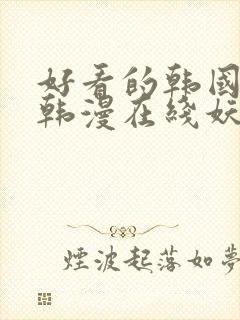 好看的韩國
韩漫在綫妖
煙波起落如夢